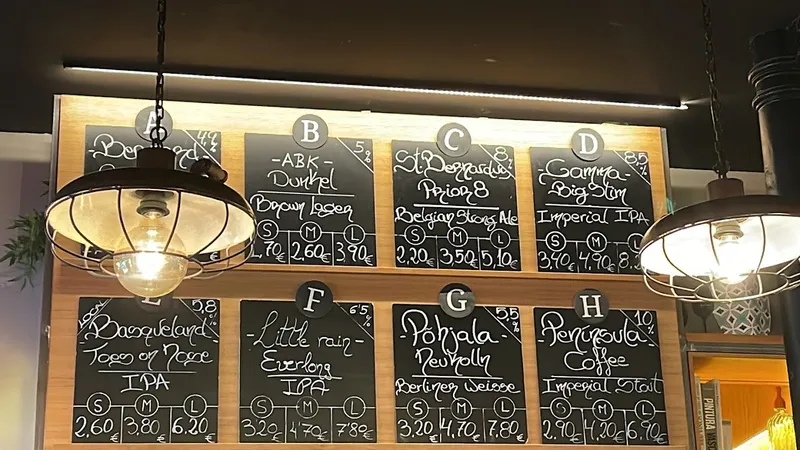 A
4,9
%
B
5
%
-ABK-
Dunkel
Brown Lager
S M L
1.70 2,60€ 3,90€
C
8
%
St. Bernardus
PRIOR 8
Belgian Strong Ale
S M L
2.20€ 3,50€ 5,10€
D
8,5
%
-Gamma-
Big Slim
Imperial IPA
S M L
3,40€ 4,90€
E
LOCAL
5,8
%
-Basqueland-
IPA
S M L
2,60€ 3,80€ 6,20€
F
6'5
%
-Little rain-
Everlong
IPA
S M L
3,20€ 4,70€ 7'80€
G
5,5
%
-Põhjala-
Berliner Weisse
S M L
3,20€ 4,70€ 7,80€
H
10
%
-Península-
Coffee
Imperial Stout
S M L
2,90€ 4,20€ 6,90€